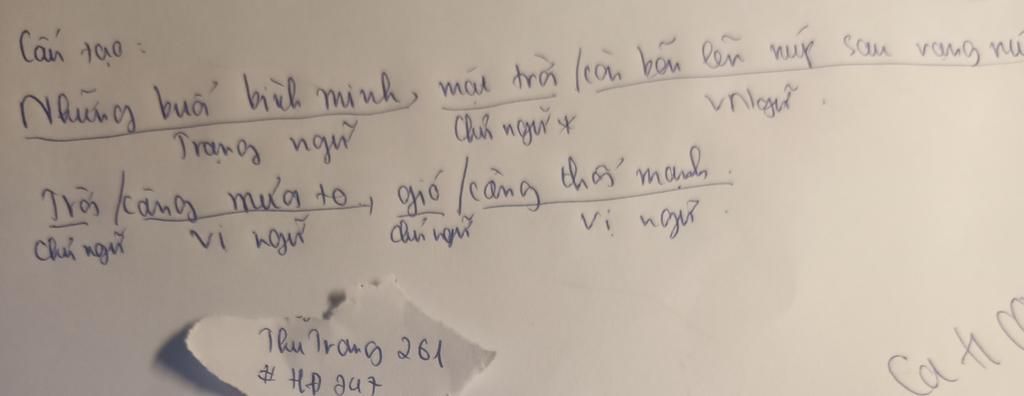 Cấu tạo:
Những buổi bình minh, mặt trời / còn bẽn lẽn núp sau rạng nú
Trạng ngữ Chủ ngữ * Vị ngữ.
Trời / càng mưa to, gió / càng thổi mạnh.
Chủ ngữ Vị ngữ Chủ ngữ Vị ngữ
Thu Trang 261
# HĐ 247